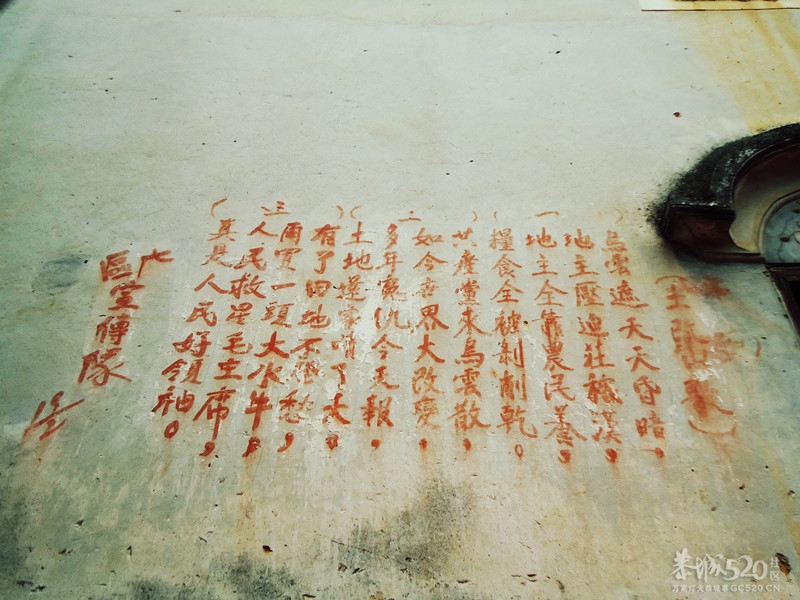 (一)
烏雲遮天天昏暗,
地主壓迫
地主全靠農民養,
糧食全被剝削乾。
(二)
共產黨來烏雲散,
如今世界大改變,
多年冤仇今天報,
土地還家
(三)
有了田地不
再買一頭大水牛,
人民救星毛主席,
真是人民好領袖。
六
區宣傳隊
恭城520社区
GC520.CN